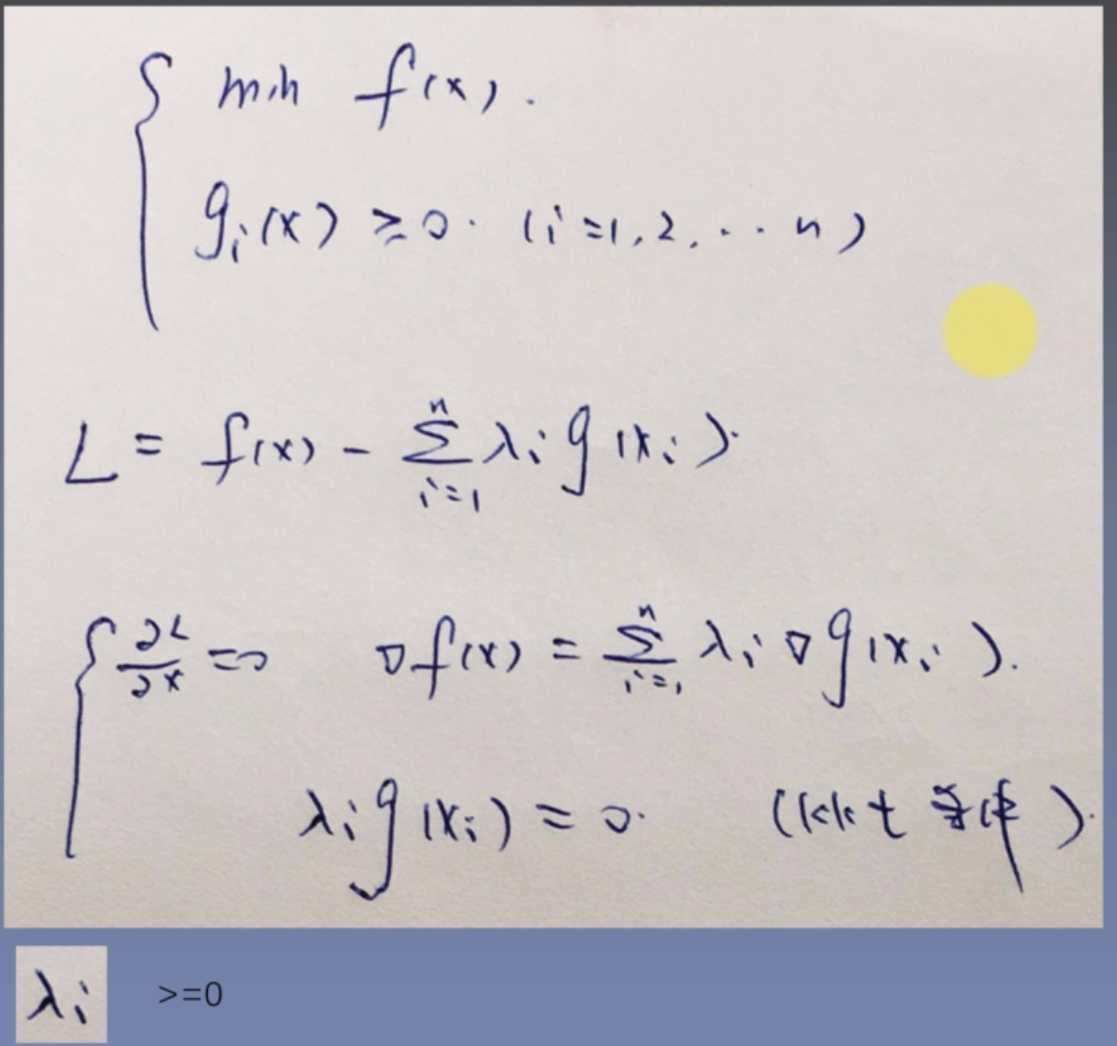 min f(x).
gᵢ(x) ≥ 0. (i=1,2,...n)
L = f(x) - ∑ᵢ₌₁ⁿ λᵢ g(xᵢ).
∂L/∂x =0 ∇f(x) = ∑ᵢ₌₁ⁿ λᵢ ∇g(xᵢ).
λᵢ g(xᵢ) = 0. (kkt 条件).
λᵢ >=0